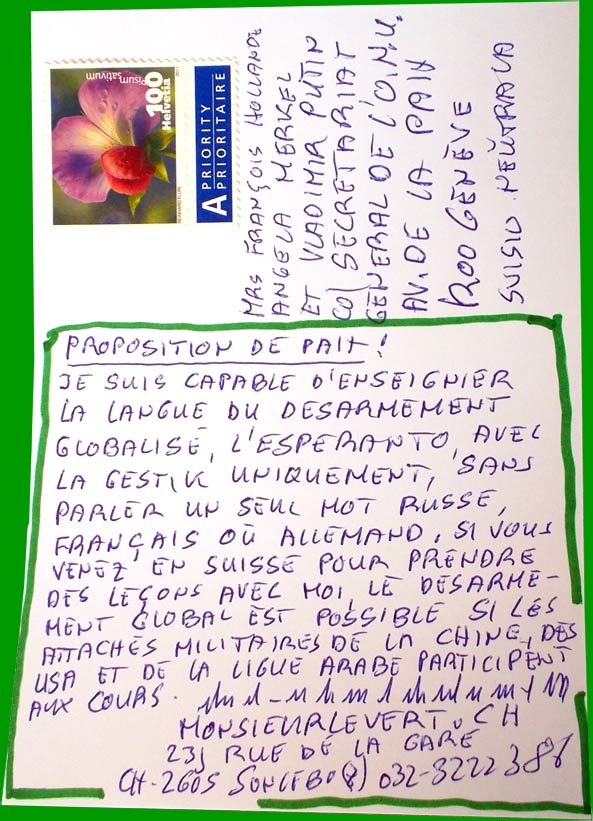 Pisum
sativum
2011
100
Helvetia
A PRIORITY
PRIORITAIRE
MRS FRANÇOIS HOLLANDE
ANGELA MERKEL
ET VLADIMIR PUTIN
CO/ SECRETARIAT
GÉNÉRAL DE L'O.N.U.
AV. DE LA PAIX
1200 GENÈVE
SUISIO NEŬTRALA
PROPOSITION DE PAIX!
JE SUIS CAPABLE D'ENSEIGNIER
LA LANGUE DU DESARMEMENT
GLOBALISÉ, L'ESPERANTO, AVEC
LA GESTIK UNIQUEMENT, SANS
PARLER UN SEUL MOT RUSSE,
FRANÇAIS OÙ ALLEMAND. SI VOUS
VENEZ EN SUISSE POUR PRENDRE
DES LEÇONS AVEC MOI, LE DÉSARME-
MENT GLOBAL EST POSSIBLE SI LES
ATTACHÉS MILITAIRES DE LA CHINE, DES
USA ET DE LA LIGUE ARABE PARTICIPENT
AUX COURS.
MONSIEURLEVERT.CH
23, RUE DE LA GARE
CH-2605 SONCEBOZ 032-3222386